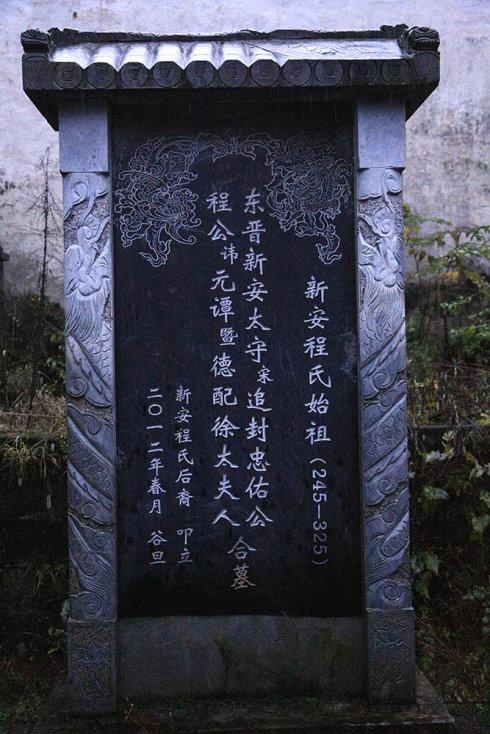 新安程氏始祖（245—325）
东晋新安太守宋追封忠佑公
程公讳元谭暨德配徐太夫人
合墓
新安程氏后裔 叩立
二〇一二年春月 谷旦